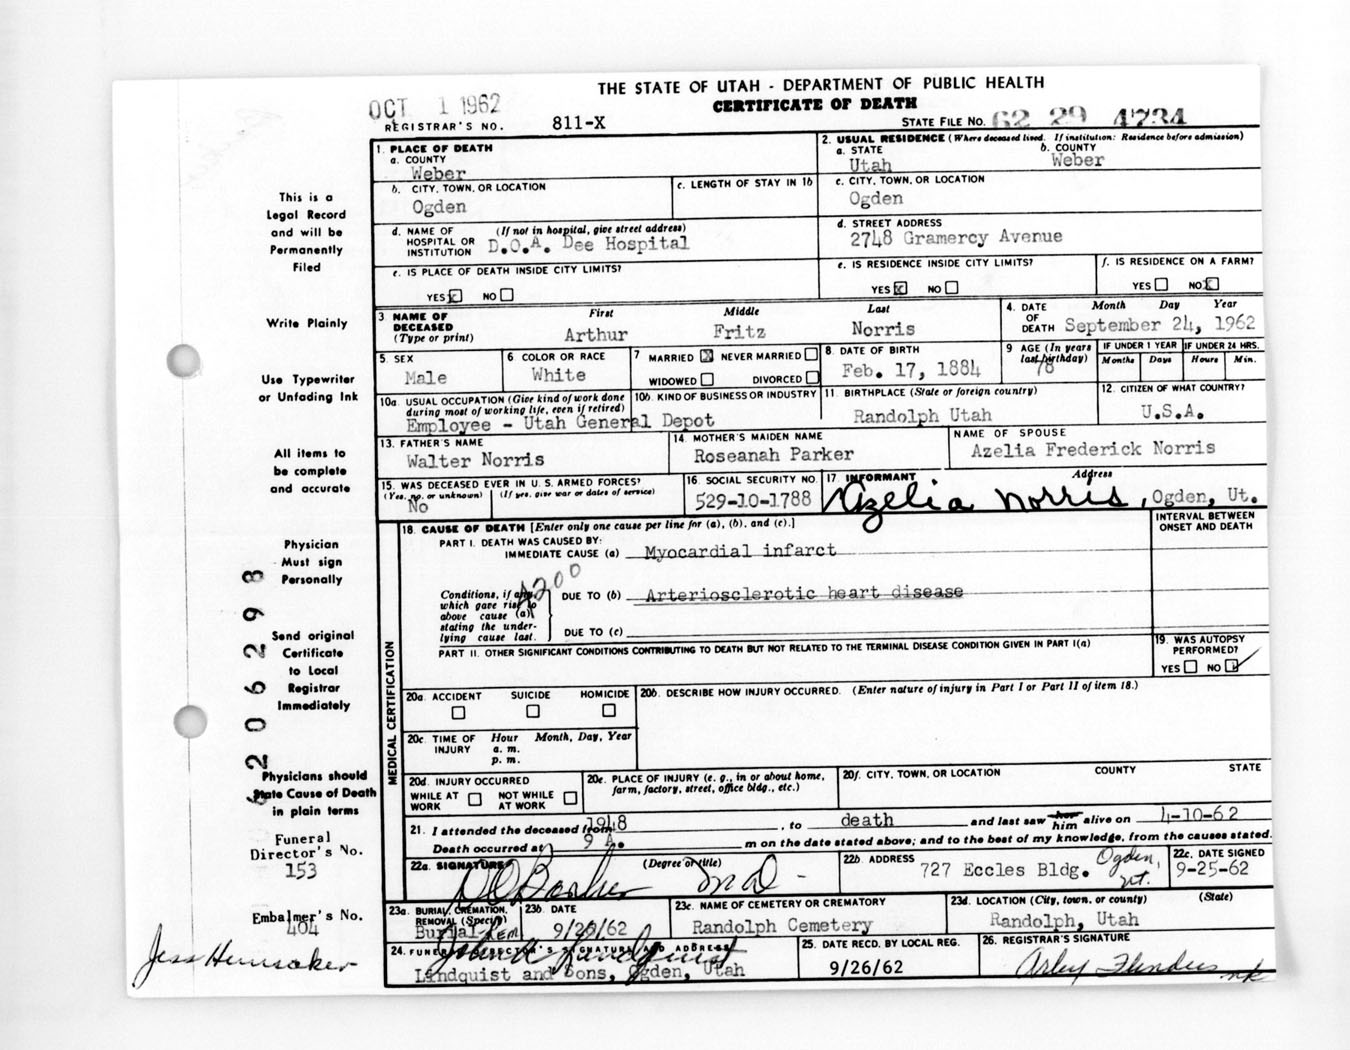 THE STATE OF UTAH - DEPARTMENT OF PUBLIC HEALTH
CERTIFICATE OF DEATH
OCT 1 1962
REGISTRAR'S NO. 811-X
STATE FILE NO. 62 29 4734
This is a
Legal Record
and will be
Permanently
Filed
Write Plainly
Use Typewriter
or Unfading Ink
All items to
be complete
and accurate
Physician
Must sign
Personally
Send original
Certificate
to Local
Registrar
Immediately
Physicians should
State Cause of Death
in plain terms
Funeral
Director's No.
153
Embalmer's No.
404
Jess Hunsaker
2062298
1. PLACE OF DEATH
a. COUNTY
Weber
2. USUAL RESIDENCE (Where deceased lived. If institution: Residence before admission)
a. STATE
Utah
b. COUNTY
Weber
b. CITY, TOWN, OR LOCATION
Ogden
c. LENGTH OF STAY IN 1b
c. CITY, TOWN, OR LOCATION
Ogden
d. NAME OF HOSPITAL OR INSTITUTION (If not in hospital, give street address)
D.O.A. Dee Hospital
d. STREET ADDRESS
2748 Gramercy Avenue
e. IS PLACE OF DEATH INSIDE CITY LIMITS?
YES x NO
e. IS RESIDENCE INSIDE CITY LIMITS?
YES x NO
f. IS RESIDENCE ON A FARM?
YES NO x
3 NAME OF DECEASED (Type or print)
First Middle Last
Arthur Fritz Norris
4. DATE OF DEATH Month Day Year
September 24, 1962
5. SEX
Male
6 COLOR OR RACE
White
7 MARRIED x NEVER MARRIED
WIDOWED DIVORCED
8. DATE OF BIRTH
Feb. 17, 1884
9 AGE (In years last birthday)
78
IF UNDER 1 YEAR
Months Days
IF UNDER 24 HRS.
Hours Min.
10a. USUAL OCCUPATION (Give kind of work done during most of working life, even if retired)
10b. KIND OF BUSINESS OR INDUSTRY
Employee - Utah General Depot
11. BIRTHPLACE (State or foreign country)
Randolph Utah
12. CITIZEN OF WHAT COUNTRY?
U.S.A.
13. FATHER'S NAME
Walter Norris
14. MOTHER'S MAIDEN NAME
Roseanah Parker
NAME OF SPOUSE
Azelia Frederick Norris
15. WAS DECEASED EVER IN U. S. ARMED FORCES?
(Yes, no, or unknown) (If yes, give war or dates of service)
No
16. SOCIAL SECURITY NO.
529-10-1788
17. INFORMANT Address
Azelia Norris, Ogden, Ut.
MEDICAL CERTIFICATION
18. CAUSE OF DEATH [Enter only one cause per line for (a), (b), and (c).]
INTERVAL BETWEEN ONSET AND DEATH
PART I. DEATH WAS CAUSED BY:
IMMEDIATE CAUSE (a) Myocardial infarct
4200
Conditions, if any, which gave rise to above cause (a), stating the underlying cause last.
DUE TO (b) Arteriosclerotic heart disease
DUE TO (c)
PART II. OTHER SIGNIFICANT CONDITIONS CONTRIBUTING TO DEATH BUT NOT RELATED TO THE TERMINAL DISEASE CONDITION GIVEN IN PART I(a)
19. WAS AUTOPSY PERFORMED?
YES NO ✓
20a. ACCIDENT SUICIDE HOMICIDE
20b. DESCRIBE HOW INJURY OCCURRED. (Enter nature of injury in Part I or Part II of item 18.)
20c. TIME OF INJURY Hour Month, Day, Year
a. m.
p. m.
20d. INJURY OCCURRED
WHILE AT WORK NOT WHILE AT WORK
20e. PLACE OF INJURY (e. g., in or about home, farm, factory, street, office bldg., etc.)
20f. CITY, TOWN, OR LOCATION COUNTY STATE
21. I attended the deceased from 1948, to death and last saw her him alive on 4-10-62
Death occurred at 9 A. m on the date stated above; and to the best of my knowledge, from the causes stated.
22a. SIGNATURE (Degree or title)
D O Barker MD -
22b. ADDRESS
727 Eccles Bldg. Ogden, Ut.
22c. DATE SIGNED
9-25-62
23a. BURIAL, CREMATION, REMOVAL (Specify)
Burial-Rem
23b. DATE
9/26/62
23c. NAME OF CEMETERY OR CREMATORY
Randolph Cemetery
23d. LOCATION (City, town, or county) (State)
Randolph, Utah
24. FUNERAL DIRECTOR'S SIGNATURE AND ADDRESS
Lindquist
Lindquist and Sons, Ogden, Utah
25. DATE RECD. BY LOCAL REG.
9/26/62
26. REGISTRAR'S SIGNATURE
Arley Flinders nk